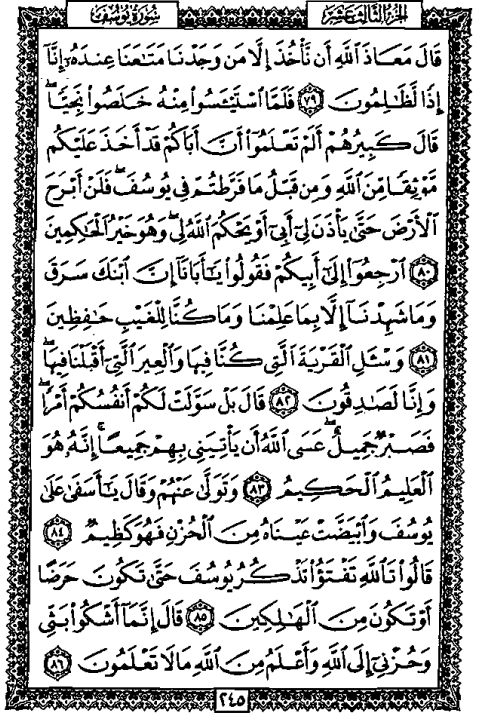 سُورَةُ يُوسُفَ
الجُزْءُ الثَّالِثَ عَشَرَ
قَالَ مَعَاذَ ٱللَّهِ أَن نَّأْخُذَ إِلَّا مَن وَجَدْنَا مَتَٰعَنَا عِندَهُۥٓ إِنَّآ
إِذًا لَّظَٰلِمُونَ ٧٩ فَلَمَّا ٱسْتَيْـَٔسُوا۟ مِنْهُ خَلَصُوا۟ نَجِيًّا ۖ
قَالَ كَبِيرُهُمْ أَلَمْ تَعْلَمُوٓا۟ أَنَّ أَبَاكُمْ قَدْ أَخَذَ عَلَيْكُم
مَّوْثِقًا مِّنَ ٱللَّهِ وَمِن قَبْلُ مَا فَرَّطتُمْ فِى يُوسُفَ ۖ فَلَنْ أَبْرَحَ
ٱلْأَرْضَ حَتَّىٰ يَأْذَنَ لِىٓ أَبِىٓ أَوْ يَحْكُمَ ٱللَّهُ لِى ۖ وَهُوَ خَيْرُ ٱلْحَٰكِمِينَ
٨٠ ٱرْجِعُوٓا۟ إِلَىٰٓ أَبِيكُمْ فَقُولُوا۟ يَٰٓأَبَانَآ إِنَّ ٱبْنَكَ سَرَقَ
وَمَا شَهِدْنَآ إِلَّا بِمَا عَلِمْنَا وَمَا كُنَّا لِلْغَيْبِ حَٰفِظِينَ
٨١ وَسْـَٔلِ ٱلْقَرْيَةَ ٱلَّتِى كُنَّا فِيهَا وَٱلْعِيرَ ٱلَّتِىٓ أَقْبَلْنَا فِيهَا ۖ
وَإِنَّا لَصَٰدِقُونَ ٨٢ قَالَ بَلْ سَوَّلَتْ لَكُمْ أَنفُسُكُمْ أَمْرًا ۖ
فَصَبْرٌ جَمِيلٌ ۖ عَسَى ٱللَّهُ أَن يَأْتِيَنِى بِهِمْ جَمِيعًا ۚ إِنَّهُۥ هُوَ
ٱلْعَلِيمُ ٱلْحَكِيمُ ٨٣ وَتَوَلَّىٰ عَنْهُمْ وَقَالَ يَٰٓأَسَفَىٰ عَلَىٰ
يُوسُفَ وَٱبْيَضَّتْ عَيْنَاهُ مِنَ ٱلْحُزْنِ فَهُوَ كَظِيمٌ ٨٤
قَالُوا۟ تَٱللَّهِ تَفْتَؤُا۟ تَذْكُرُ يُوسُفَ حَتَّىٰ تَكُونَ حَرَضًا
أَوْ تَكُونَ مِنَ ٱلْهَٰلِكِينَ ٨٥ قَالَ إِنَّمَآ أَشْكُوا۟ بَثِّى
وَحُزْنِىٓ إِلَى ٱللَّهِ وَأَعْلَمُ مِنَ ٱللَّهِ مَا لَا تَعْلَمُونَ ٨٦
٢٤٥